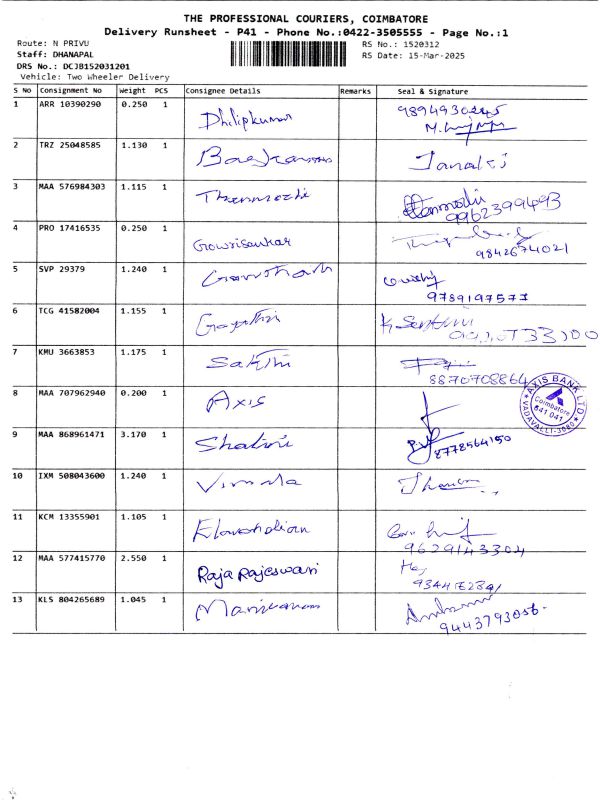 THE PROFESSIONAL COURIERS, COIMBATORE
Delivery Runsheet - P41 - Phone No.:0422-3505555 - Page No.:1
Route: N PRIVU
RS No.: 1520312
Staff: DHANAPAL
RS Date: 15-Mar-2025
DRS No.: DCJB152031201
Vehicle: Two Wheeler Delivery
S No Consignment No Weight PCS Consignee Details Remarks Seal & Signature
1 ARR 10390290 0.250 1 Dhilipkumar
2 TRZ 25048585 1.130 1 Janaki
3 MAA 576984303 1.115 1 9962399493
4 PRO 17416535 0.250 1 Gowrisankar 9842674021
5 SVP 29379 1.240 1 9789197577
6 TCG 41582004 1.155 1 Gayathri
7 KMU 3663853 1.175 1 Sakthi 8870708864
8 MAA 707962940 0.200 1 Axis
AXIS BANK LTD
Coimbatore
641 041
9 MAA 868961471 3.170 1 Shalini 8778564150
10 IXM 508043600 1.240 1 Vimala
11 KCM 13355901 1.105 1 9629143304
12 MAA 577415770 2.550 1 Raja Rajeswari
13 KLS 804265689 1.045 1 9443793056